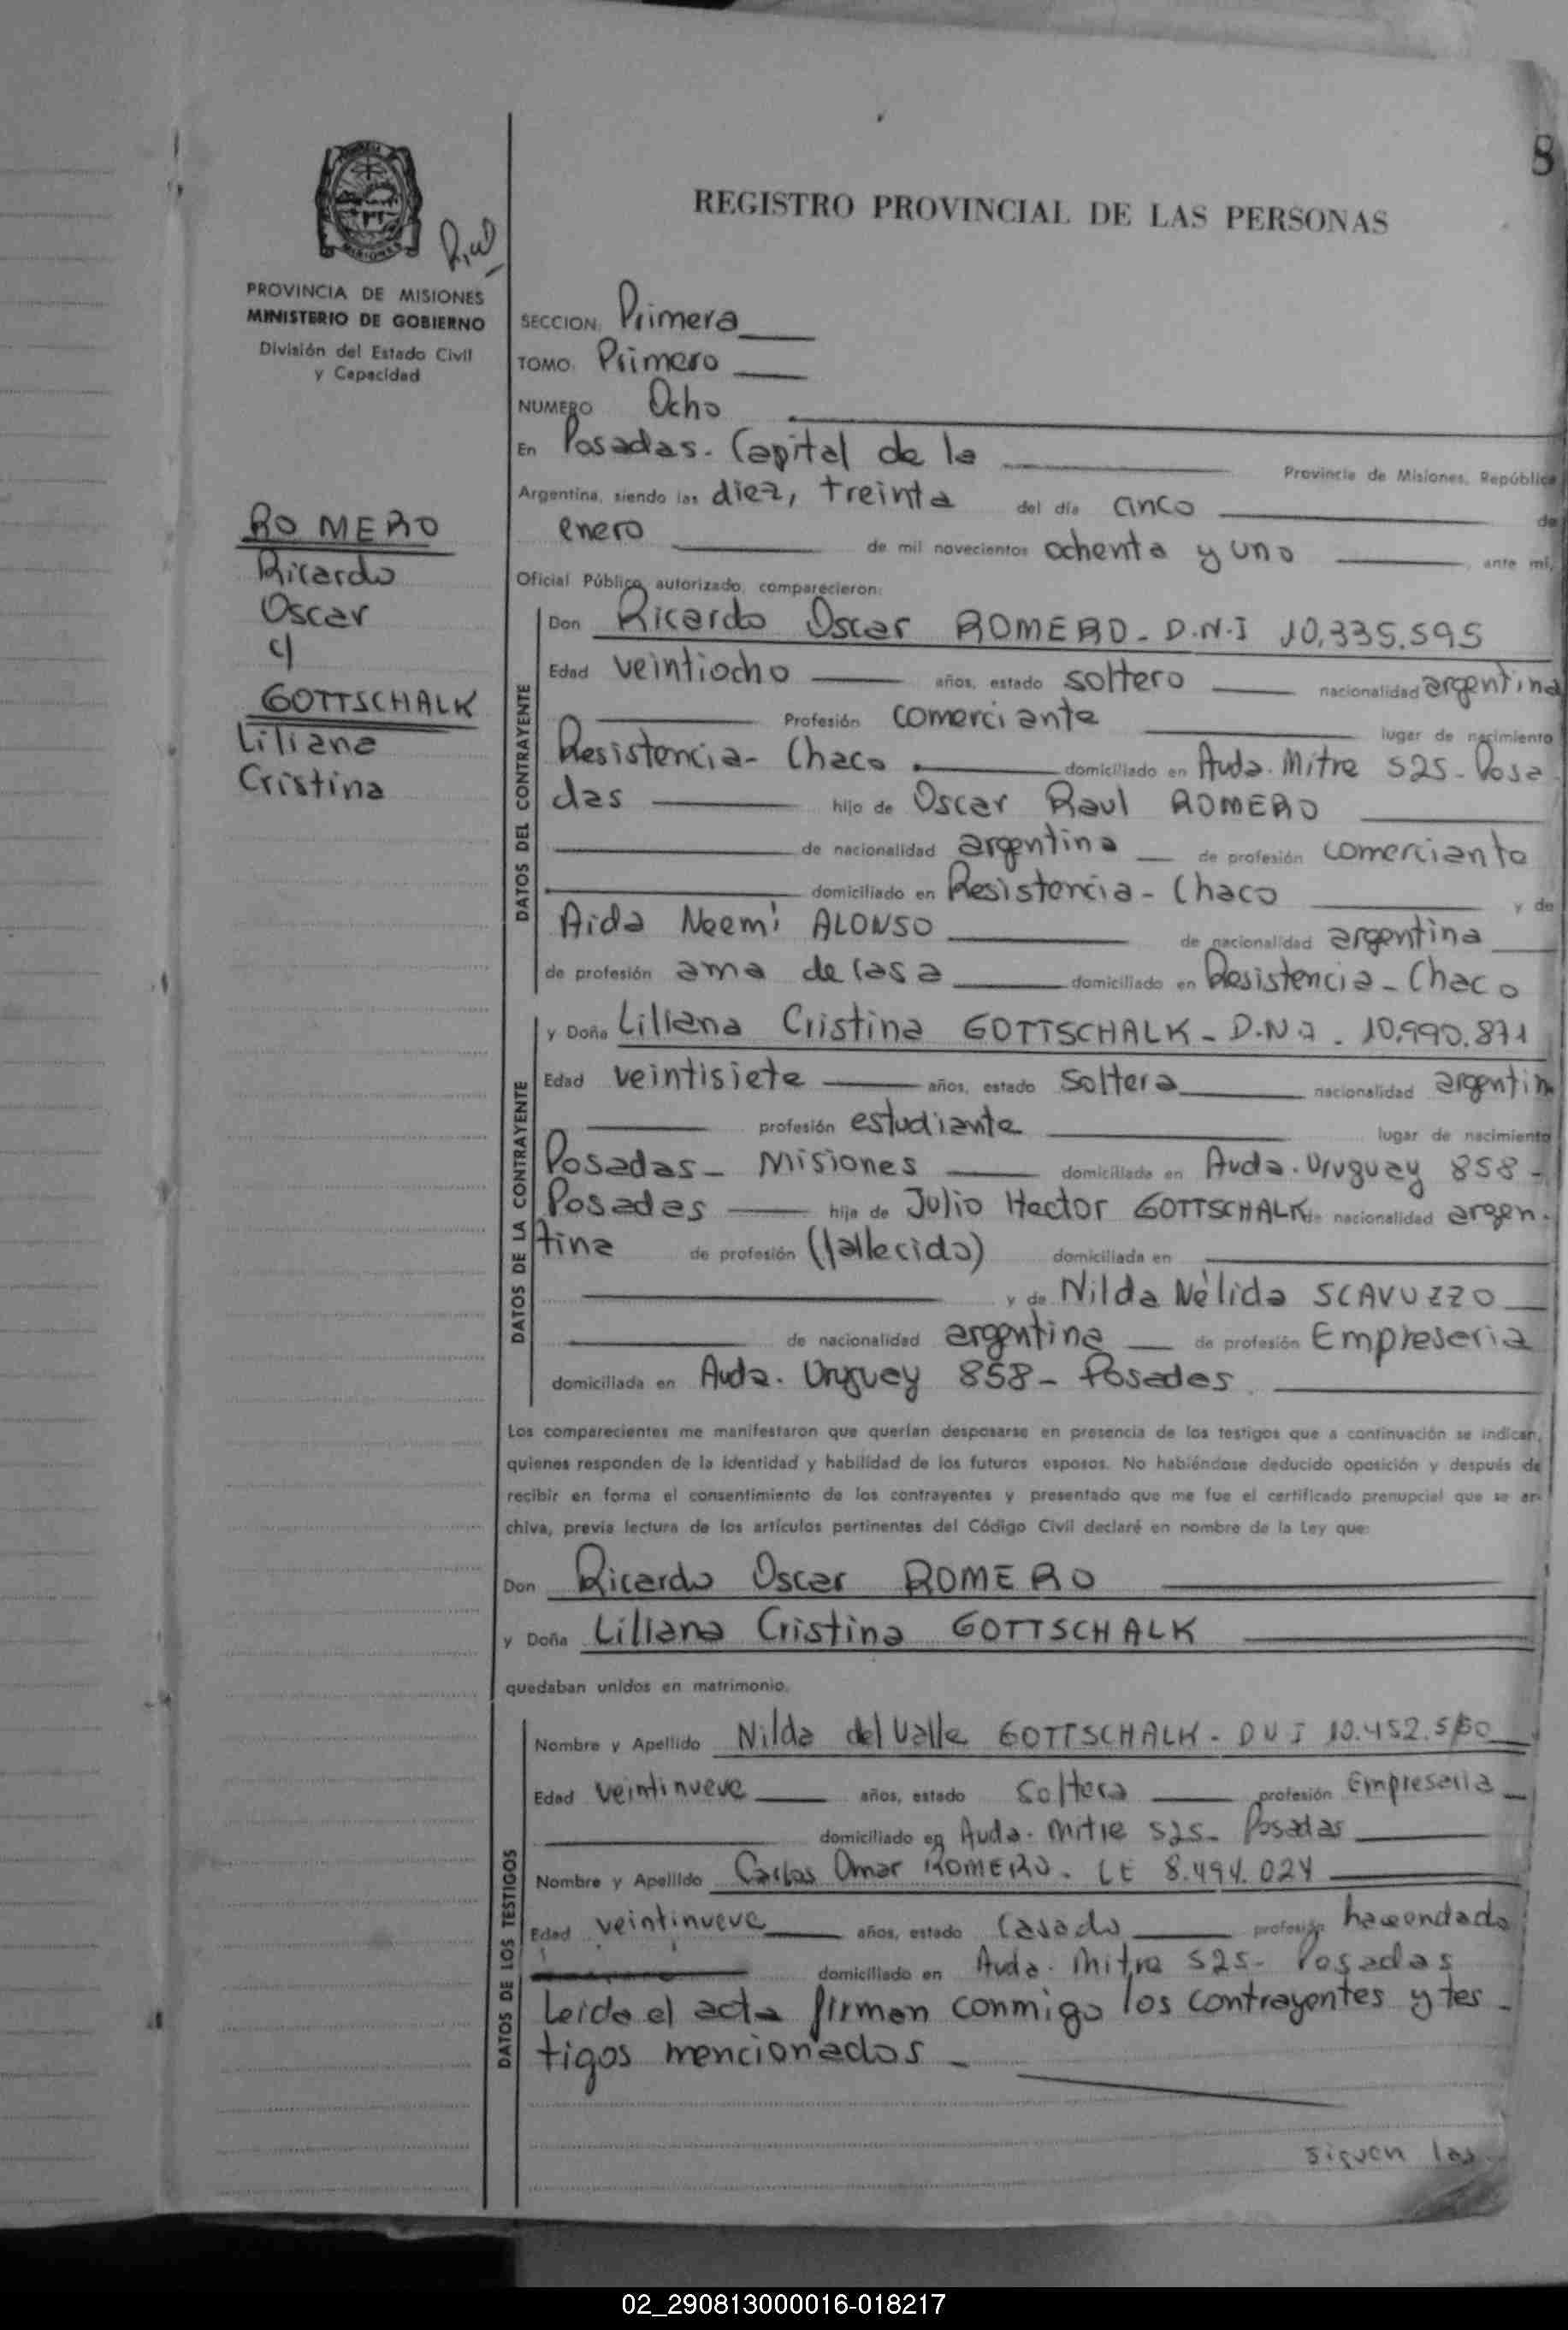 8
REGISTRO PROVINCIAL DE LAS PERSONAS
PROVINCIA DE MISIONES
MINISTERIO DE GOBIERNO
División del Estado Civil
y Capacidad
ROMERO
Ricardo
Oscar
y
GOTTSCHALK
Liliana
Cristina
SECCION: Primera
TOMO: Primero
NUMERO Ocho
En Posadas. Capital de la Provincia de Misiones, República
Argentina, siendo las diez, treinta del día cinco de
enero de mil novecientos ochenta y uno ante mí,
Oficial Público autorizado, comparecieron:
DATOS DEL CONTRAYENTE
Don Ricardo Oscar ROMERO - D.N.I 10.335.595
Edad veintiocho años, estado soltero nacionalidad argentina
Profesión comerciante lugar de nacimiento
Resistencia - Chaco domiciliado en Avda. Mitre 525 - Posa
das hijo de Oscar Raul ROMERO
de nacionalidad argentina de profesión comerciante
domiciliado en Resistencia - Chaco y de
Aida Noemi ALONSO de nacionalidad argentina
de profesión ama de casa domiciliado en Resistencia - Chaco
DATOS DE LA CONTRAYENTE
y Doña Liliana Cristina GOTTSCHALK - D.N.I. 10.990.871
Edad veintisiete años, estado soltera nacionalidad argentin
profesión estudiante lugar de nacimiento
Posadas - Misiones domiciliada en Avda. Uruguay 858 -
Posadas hija de Julio Hector GOTTSCHALK de nacionalidad argen-
tina de profesión (fallecido) domiciliada en
y de Nilda Nélida SCAVUZZO
de nacionalidad argentina de profesión Empresaria
domiciliada en Avda. Uruguay 858 - Posadas
Los comparecientes me manifestaron que querían desposarse en presencia de los testigos que a continuación se indican,
quienes responden de la identidad y habilidad de los futuros esposos. No habiéndose deducido oposición y después de
recibir en forma el consentimiento de los contrayentes y presentado que me fue el certificado prenupcial que se ar-
chiva, previa lectura de los artículos pertinentes del Código Civil declaré en nombre de la Ley que:
Don Ricardo Oscar ROMERO
y Doña Liliana Cristina GOTTSCHALK
quedaban unidos en matrimonio.
DATOS DE LOS TESTIGOS
Nombre y Apellido Nilda del Valle GOTTSCHALK - DNI 10.452.
Edad veintinueve años, estado soltera profesión Empresaria
domiciliado en Avda. Mitre 525 - Posadas
Nombre y Apellido Carlos Omar ROMERO - LE 8.494.024
Edad veintinueve años, estado casado profesión hacendado
domiciliado en Avda. Mitre 525 - Posadas
Leida el acta firman conmigo los contrayentes y tes-
tigos mencionados -
siguen las
02_290813000016-018217